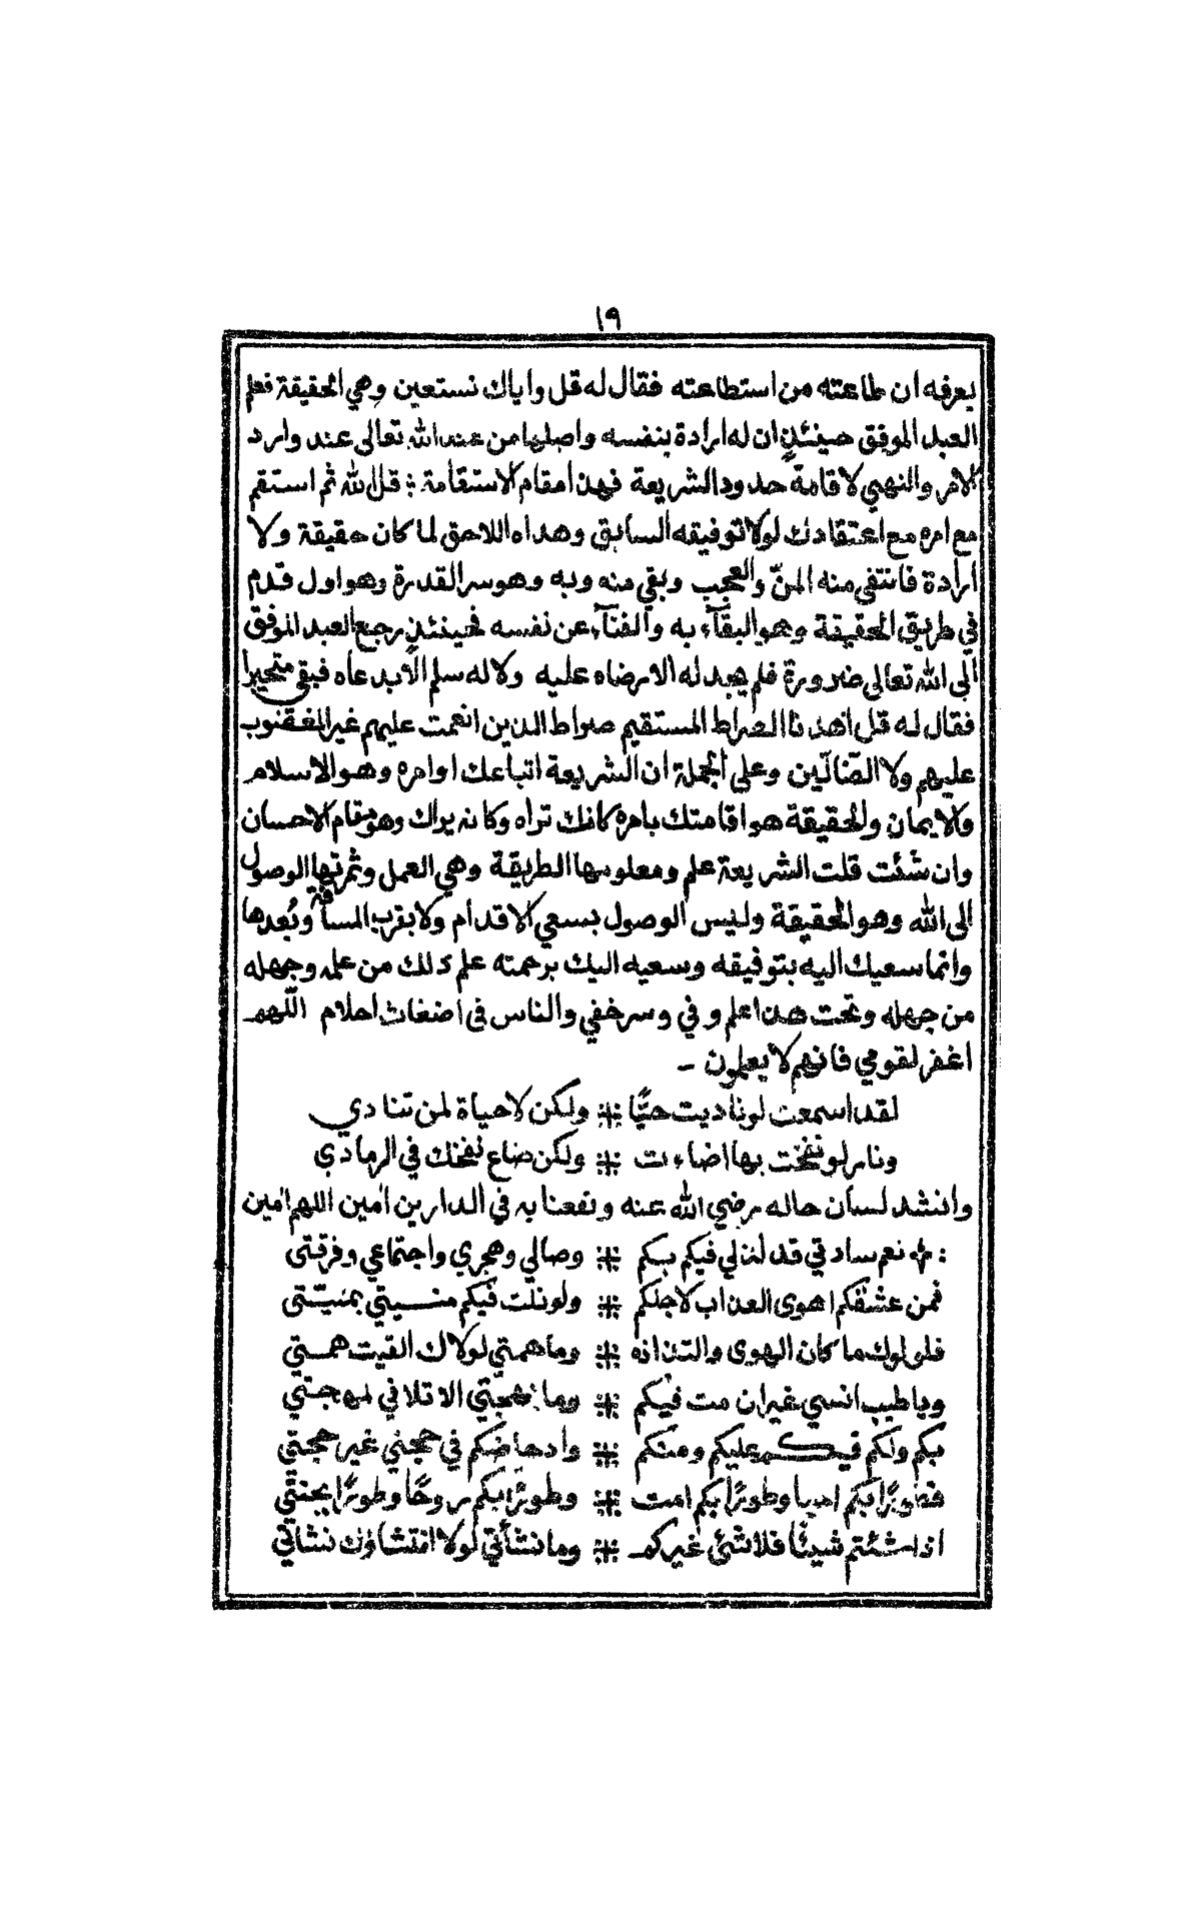 ١٩
يعرفه ان طاعته من استطاعته فقال له قل واياك نستعين وهي الحقيقة فعلم
العبد الموفق حينئذٍ ان له ارادة بنفسه واصلها من عند الله تعالى عند وارد
الامر والنهي لاقامة حدود الشريعة فهذا مقام الاستقامة : قل الله ثم استقم
مع امره مع اعتقادك لولا توفيقه السابق وهداه اللاحق لما كان حقيقة ولا
ارادة فانتفى منه المنّ والعجب وبقي منه وبه وهو سر القدرة وهو اول قدم
في طريق الحقيقة وهو البقآء به والفنآء عن نفسه فحينئذٍ رجع العبد الموفق
الى الله تعالى ضرورة فلم يجد له الا رضاه عليه ولا له سلم الا بدعاه فبقي متحيرا
فقال له قل اهدنا الصراط المستقيم صراط الذين انعمت عليهم غير المغضوب
عليهم ولا الضّالّين وعلى الجملة ان الشريعة اتباعك اوامره وهو الاسلام
والايمان والحقيقة هو اقامتك بامره كانك تراه وكانه يراك وهو مقام الاحسان
وان شئت قلت الشريعة علم ومعلومها الطريقة وهي العمل وثمرتها الوصول
الى الله وهو الحقيقة وليس الوصول بسعي الاقدام ولا بقرب المسافة وبُعدها
وانما سعيك اليه بتوفيقه وسعيه اليك برحمته علم ذلك من علمه وجهله
من جهله وتحت هذا علم وفي وسر خفي والناس في اضغاث احلام اللّهم
اغفر لقومي فانهم لا يعلمون -
لقد اسمعت لو ناديت حيًّا ⁜ ولكن لا حياة لمن تنادي
ونار لو نفخت بها اضاءت ⁜ ولكن ضاع نفخك في الرمادي
وانشد لسان حاله رضي الله عنه ونفعنا به في الدارين امين اللهم امين
: نعم سادتي قد لذ لي فيكم بكم ⁜ وصالي وهجري واجتماعي وفرقتي
فمن عشقكم اهوى العذاب لاجلكم ⁜ ولو نلت فيكم منيتي بمنيّتي
فلولوك ما كان الهوى والتذاذه ⁜ وما همتي لولاك القيت همتي
ويا طيب انسي غير ان مت فيكم ⁜ وما بهجتي الا تلافي لمهجتي
بكم ولكم فيكم عليكم ومنكم ⁜ وادحاضكم في حجتي غير حجتي
فطورًا بكم احيا وطورًا بكم امت ⁜ وطورًا بكم روحًا وطورًا بجنتي
اذا شئتم شيئًا فلا شئ غيركم ⁜ وما نشأتي لولا انتشاؤك نشاتي